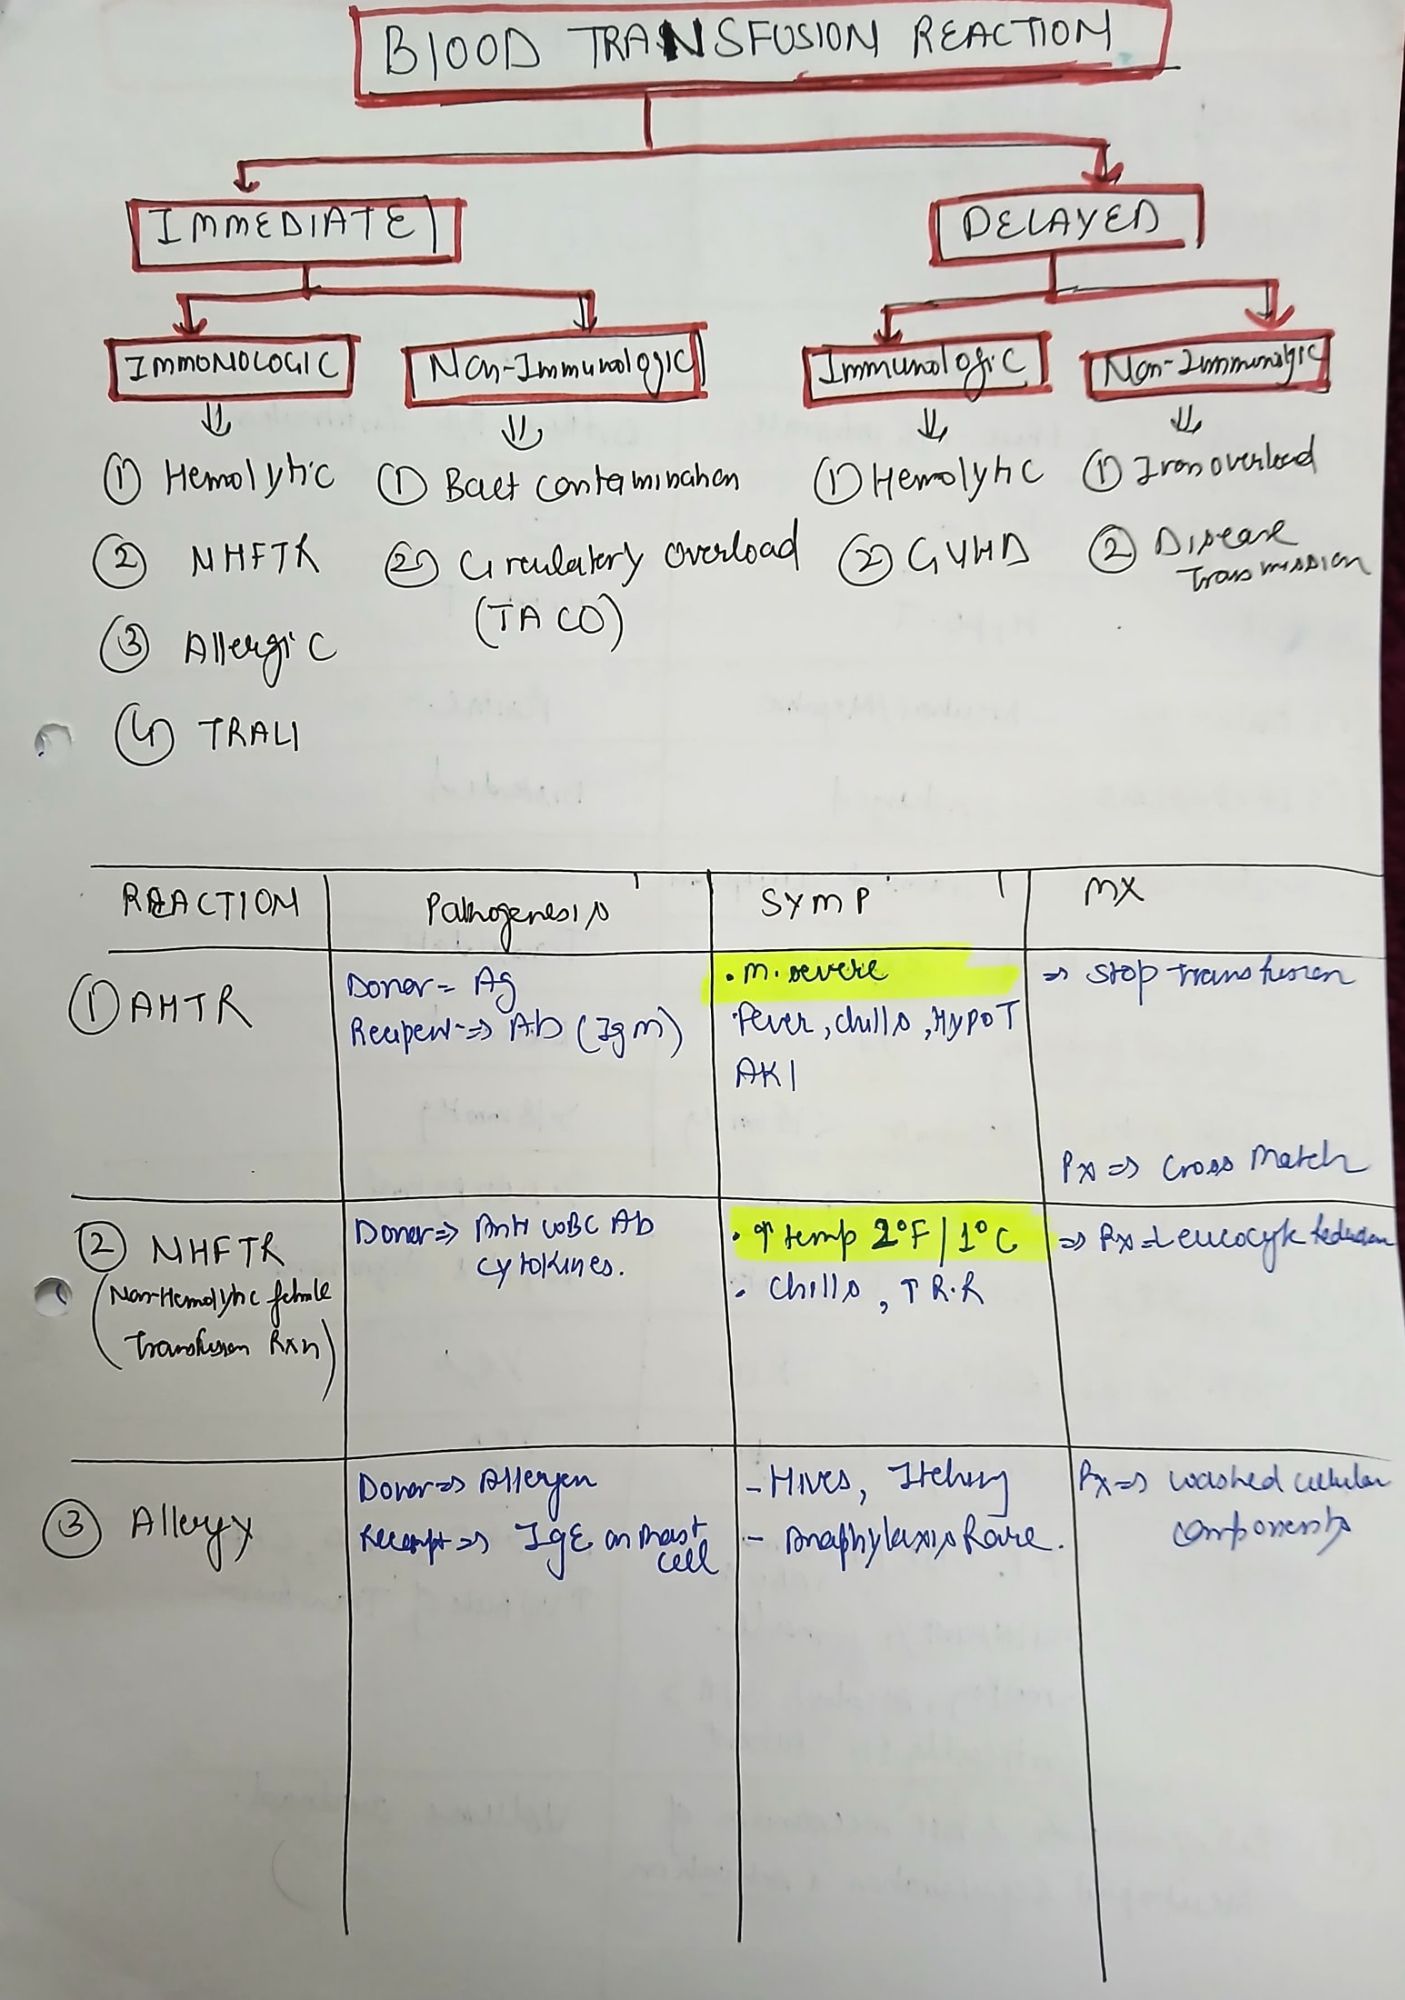 BLOOD TRANSFUSION REACTION
IMMEDIATE
DELAYED
IMMONOLOGIC
Non-Immunologic
Immunologic
Non-Immunolgic
① Hemolytic
② NHFTR
③ Allergic
④ TRALI
① Bact contamination
② Circulatory Overload
(TACO)
① Hemolytic
② GVHD
① Iron overload
② Disease
Transmission
REACTION
Pathogenesis
SYMP
MX
① AHTR
Donor = Ag
Recipent ⇒ Ab (IgM)
• M. severe
Fever, chills, HypoT
AKI
⇒ Stop transfusion
Px ⇒ Cross Match
② NHFTR
(Non-Hemolytic febrile
Transfusion Rxn)
Donor ⇒ Anti WBC Ab
cytokines.
• ↑ temp 2°F / 1°C
• Chills, ↑ R.R
⇒ Px = Leucocyte reduction
③ Allergy
Donor ⇒ Allergen
Recempt ⇒ IgE on mast
cell
- Hives, Itching
- Anaphylaxis Rare.
Px ⇒ washed cellular
components